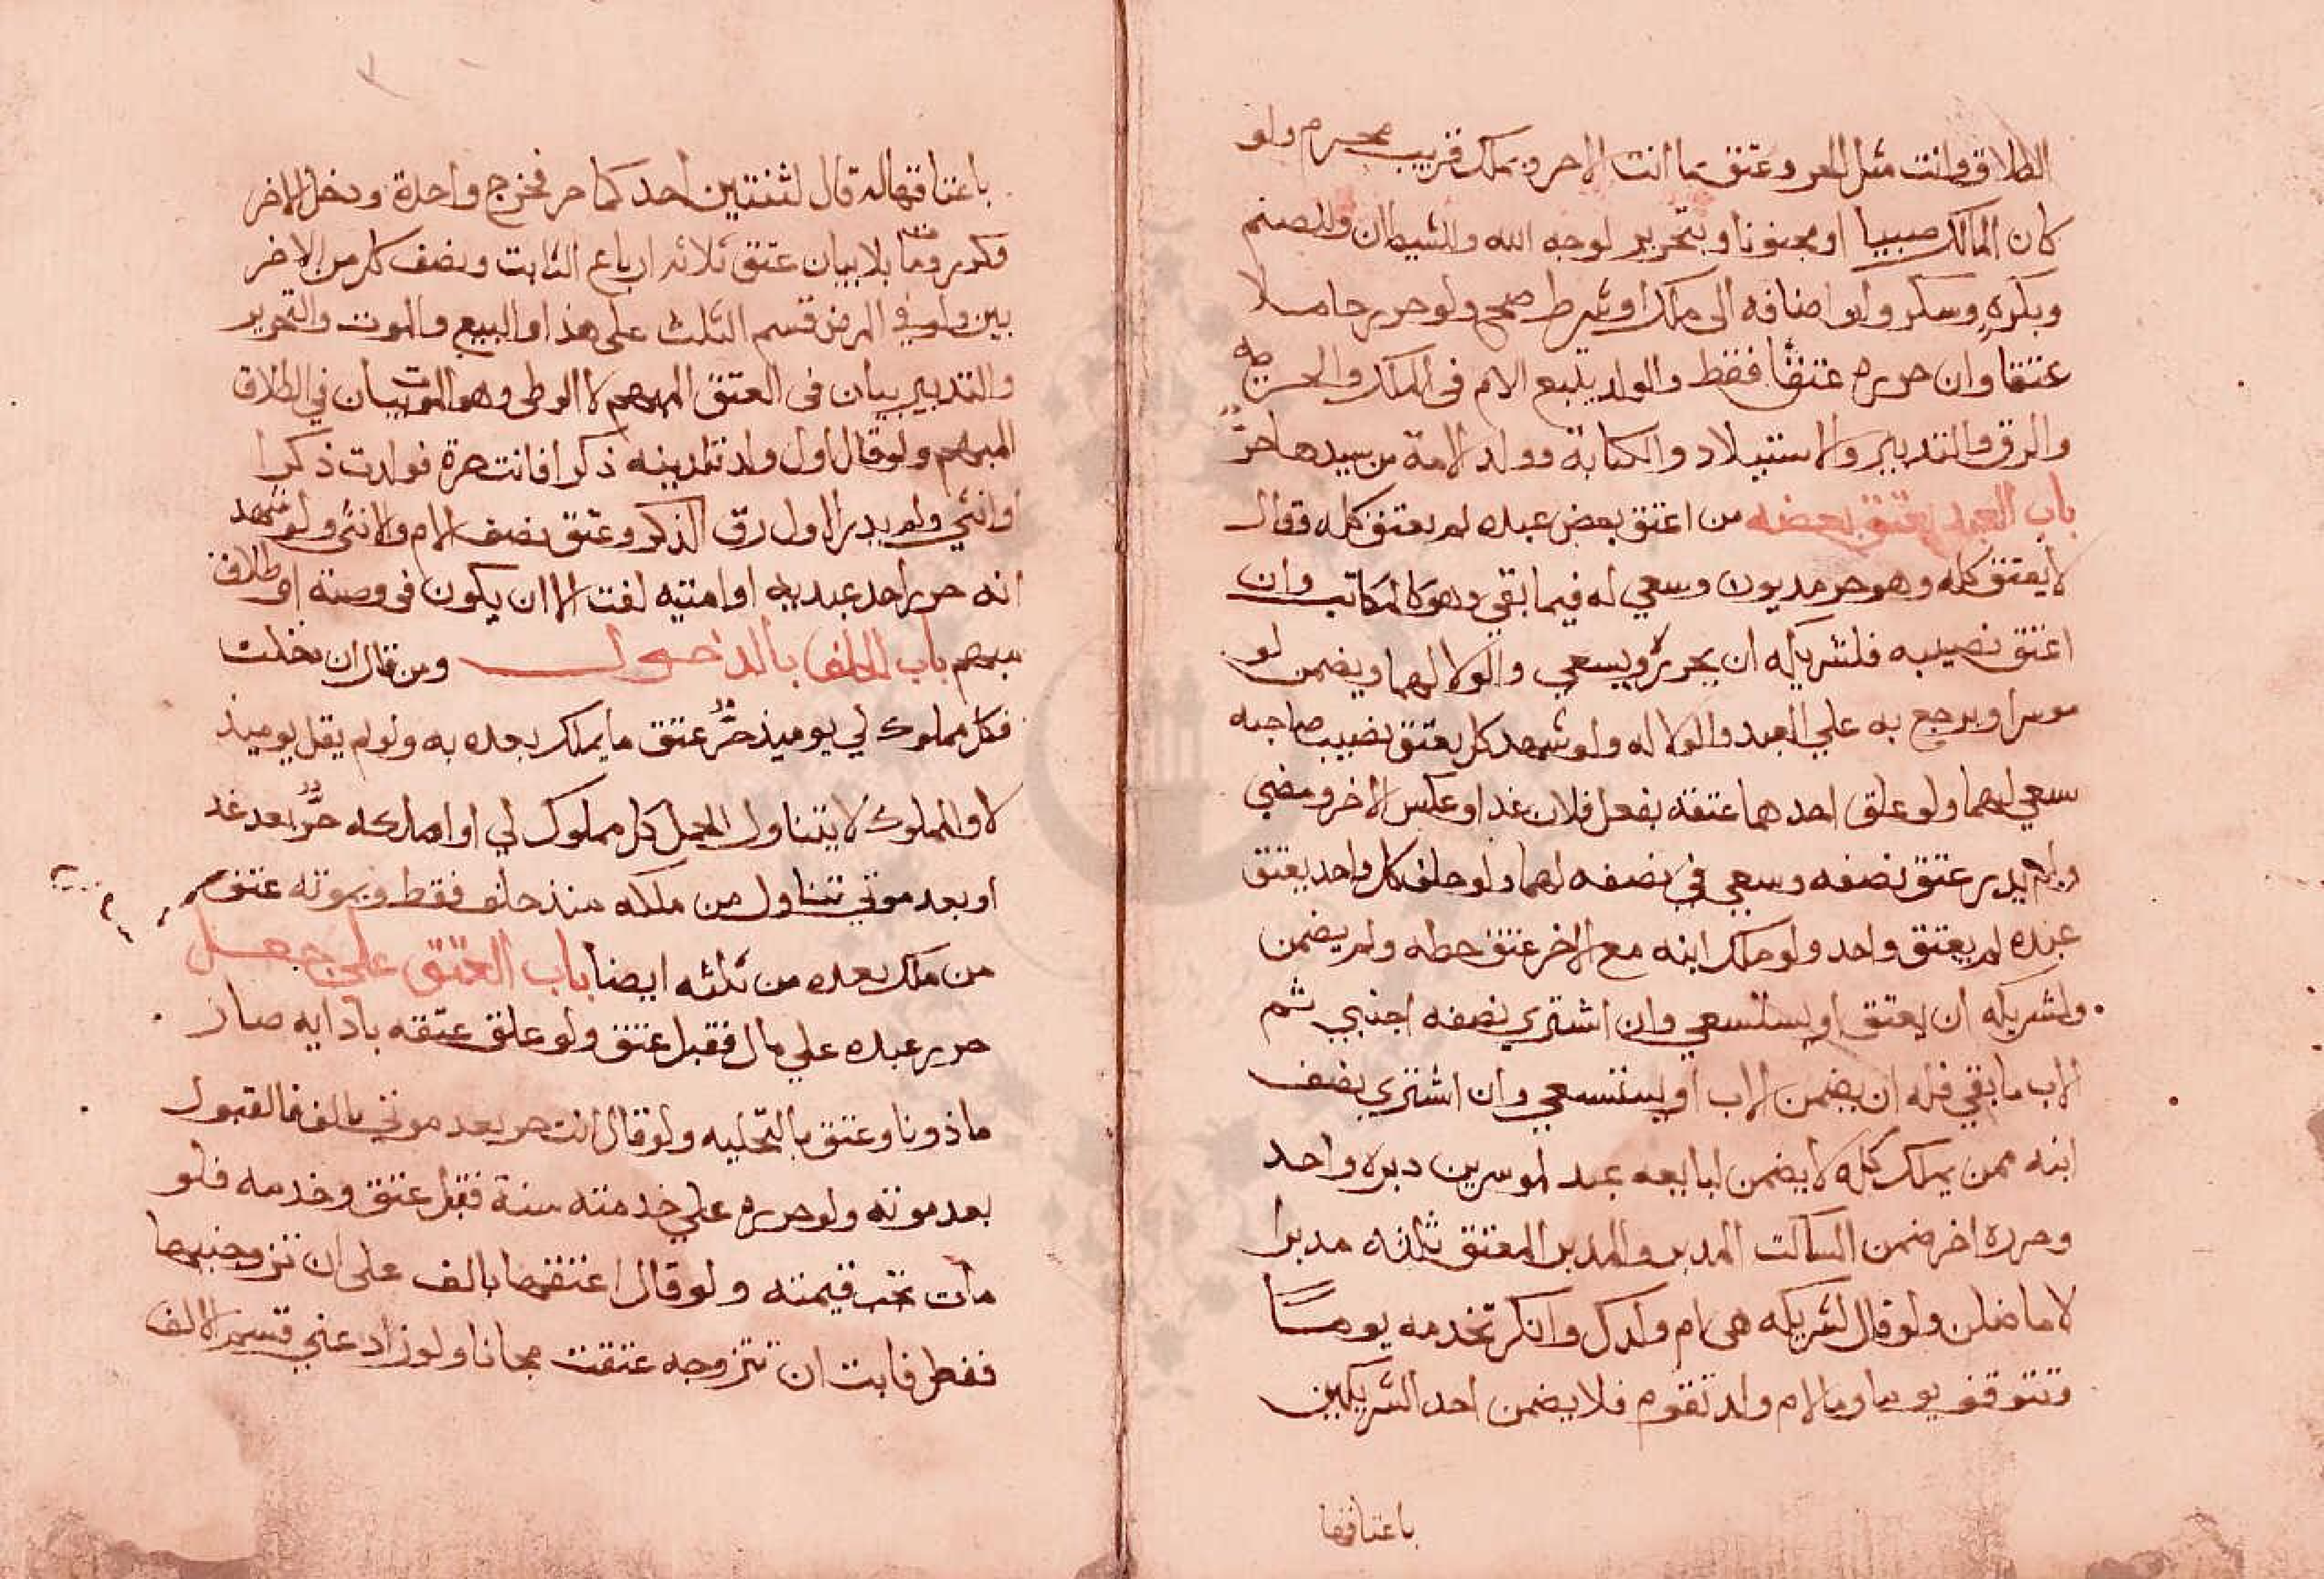 الطلاق وانت مثل الحر وعتق بما انت الا حر وبملك قريب محرم ولو
كان المالك صبيا او مجنونا وبتحرير لوجه الله والشيطان وللصنم
وبكره وسكر وان اضافه الى ملك او شرط صح ولو حرر حاملا
عتقا وان حرره عتق فقط والولد يتبع الام في الملك والحرية
والرق والتدبير والاستيلاد والكتابة وولد الامة من سيدها حرٌّ
باب العبد يعتق بعضه من اعتق بعض عبده لم يعتق كله وقالا
لا يعتق كله وهو حر مديون وسعي له فيما بقي وهو كالمكاتب وان
اعتق نصيبه فلشريكه ان يحرر او يسعي والولا لهما ويضمن لو
موسرا ويرجع به علي العبد والولا له ولو شهد كل بعتق نصيب صاحبه
سعي لهما ولو علق احدهما عتقه بفعل فلان غدا وعكس الاخر ومضي
ولم يدر عتق نصفه وسعي في نصفه لهما ولو حلف كل واحد بعتق
عبده لم يعتق واحد ولو ملك ابنه مع الاخر عتق حظه ولم يضمن
ولشريكه ان يعتق او يستسعي وان اشتري نصفه اجنبي ثم
الاب ما بقي فله ان يضمن الاب او يستسعي وان اشتري نصف
ابنه ممن يملك كله لا يضمن لبايعه عبد لموسرين دبره واحد
وحرره اخر ضمن الساكت المدبر والمدبر المعتق ثلثه مدبرا
لا ما ضمن ولو قال لشريكه هي ام ولدك وانكر تخدمه يوما
وتتوقف يوما وما لام ولد تقوم فلا يضمن احد الشريكين
باعتاقها
باعتاقها له قال لثنتين احدكما حر فخرج واحدة ودخل الاخر
فكرر ومات بلا بيان عتق ثلاثه ارباع الثابت ونصف كل من الاخر
ين ولو في المرض قسم الثلث على هذا والبيع والموت والتحرير
والتدبير بيان في العتق المبهم لا الوطي وهو والموت بيان في الطلاق
المبهم ولو قال اول ولد تلدينه ذكرا فانت حرة فولدت ذكرا
وانثي ولم يدر الاول رق الذكر وعتق نصف الام والانثي ولو شهد
انه حرر احد عبديه او امتيه لغت الا ان يكون في وصية او طلاق
مبهم باب الحلف بالدخول ومن قال ان دخلت
فكل مملوك لي يوميذ حرٌّ عتق ما يملك بعده به ولو لم يقل يوميذ
لا والمملوك لا يتناول الحمل كل مملوك لي او املكه حرٌّ بعد غد
او بعد موتي تناول من ملكه منذ حلف فقط وبموته عتق
من ملك بعده من ثلثه ايضا باب العتق علي جعل
حرر عبده علي مال فقبل عتق ولو علق عتقه بادايه صار
ماذونا وعتق بالتخليه ولو قال انت حر بعد موتي بالف فالقبول
بعد موته ولو حرره علي خدمته سنة فقبل عتق وخدمه فلو
مات تجب قيمته ولو قال اعتقها بالف على ان تزوجنيها
ففعل فابت ان تتزوجه عتقت مجانا ولو زاد عني قسم الالف